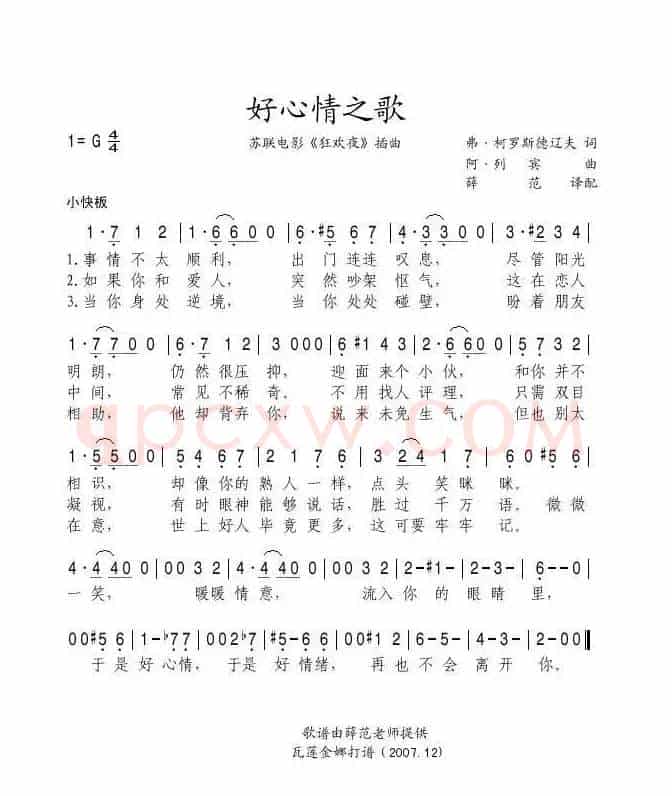 好心情之歌
1=G 4/4
苏联电影《狂欢夜》插曲
弗·柯罗斯德辽夫 词
阿·列宾 曲
薛范 译配
小快板
1·7 1 2 | 1·6 6 0 0 | 6·#5 6 7 | 4·3 3 0 0 | 3·#2 3 4 |
1.事情不太顺利, 出门连连叹息, 尽管阳光
2.如果你和爱人, 突然吵架怄气, 这在恋人
3.当你身处逆境, 当你处处碰壁, 盼着朋友
1·7 7 0 0 | 6·7 1 2 | 3 0 0 0 | 6 #1 4 3 | 2·6 6 0 0 | 5 7 3 2 |
明朗, 仍然很压抑, 迎面来个小伙, 和你并不
中间, 常见不稀奇。 不用找人评理, 只需双目
相助, 他却背弃你, 说来未免生气, 但也别太
1·5 5 0 0 | 5 4 6 7 | 1 2 7 6 | 5 4 6 7 | 3 2 4 1 7 | 6 0 #5 6 |
相识, 却像你的熟人一样, 点头笑眯眯。
凝视, 有时眼神能够说话, 胜过千万语。微微
在意, 世上好人毕竟更多, 这可要牢牢记。
4·4 4 0 0 | 0 0 3 4 | 2·4 4 0 0 | 0 0 3 4 | 2-#1- | 2-3- | 6--- |
一笑, 暖暖情意, 流入你的眼睛里,
0 0 #5 6 | 1-♭7 7 | 0 0 6 7 | #5-6 6 | 0 0 5 6 | 4-5- | 4-3- | 2-0 0 ‖
于是好心情, 于是好情绪, 再也不会离开你。
qpcxw.com
歌谱由薛范老师提供
瓦莲金娜打谱(2007.12)